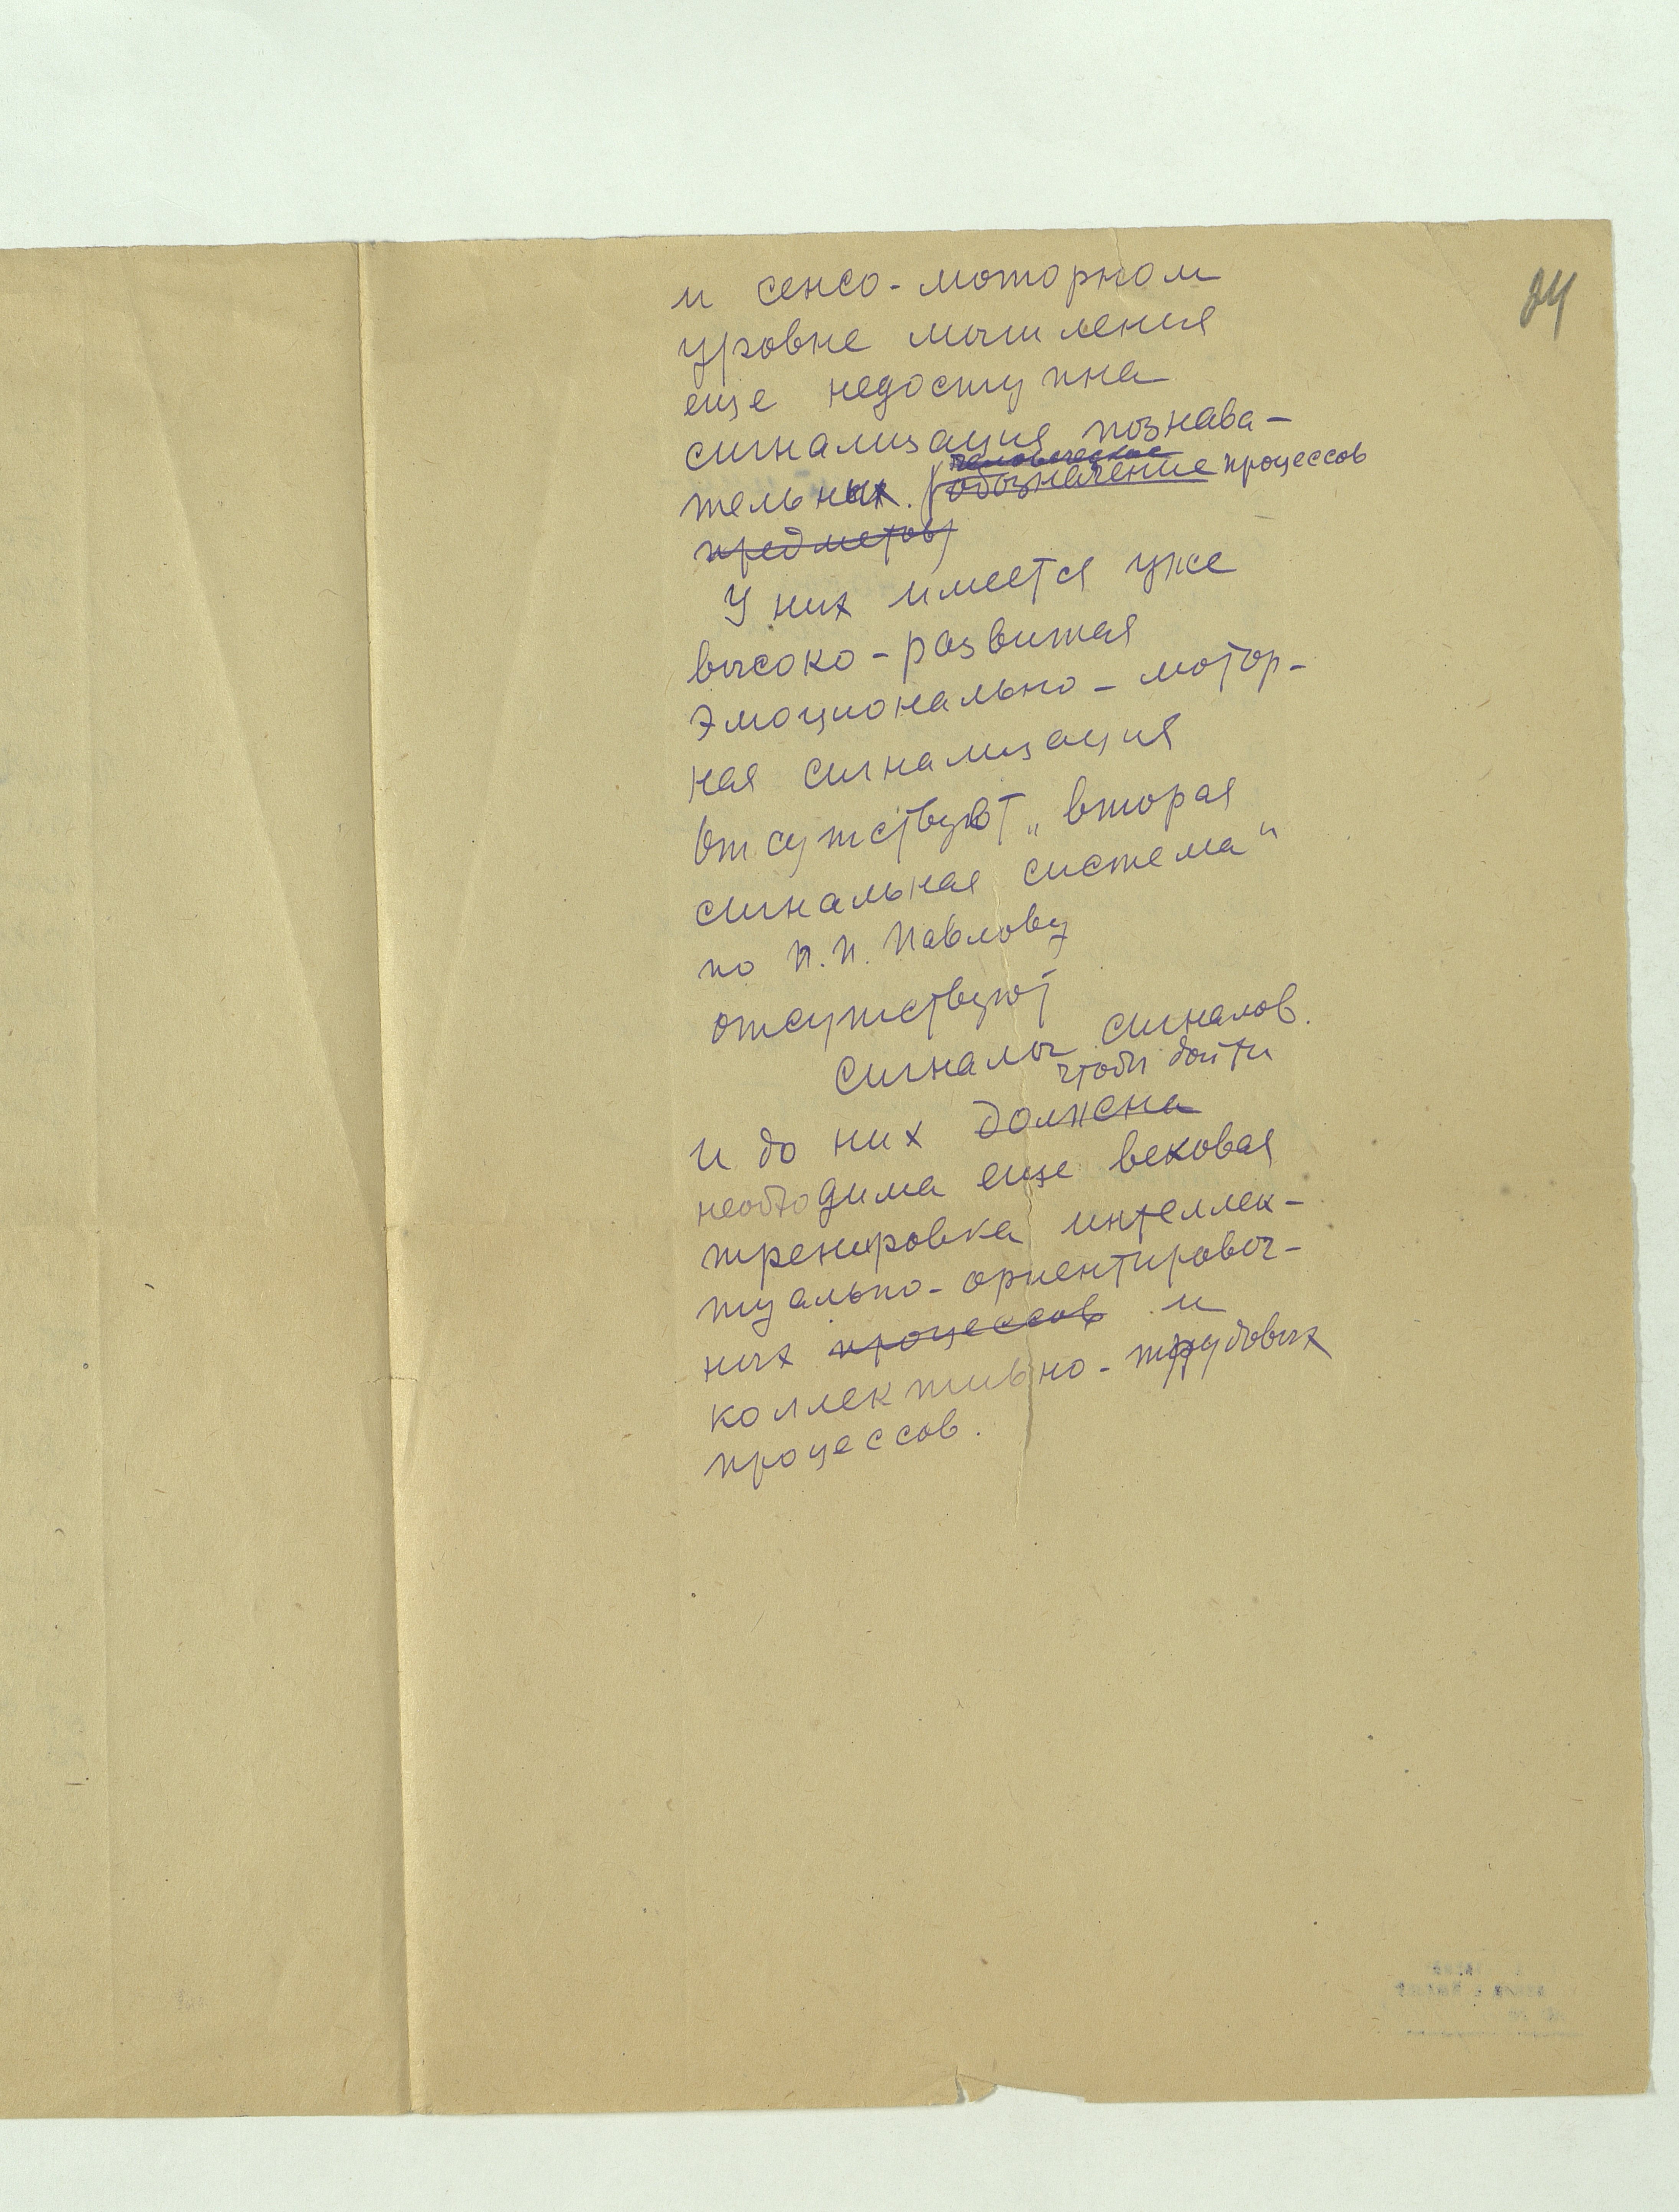 24
и сенсо-моторном
уровне мышления
еще недоступна
сигнализация познава-
человеческое
тельных. (обозначение процессов
предметов)
У них имеется уже
высоко-развитая
эмоционально-мотор-
ная сигнализация
Отсутствуют „вторая
сигнальная система"
по И.П. Павлову
отсутствуют
сигналы сигналов.
чтобы дойти
И до них должна
необходима еще вековая
тренировка интеллек-
туально-ориентировоч-
ных процессов и
коллективно-трудовых
процессов.